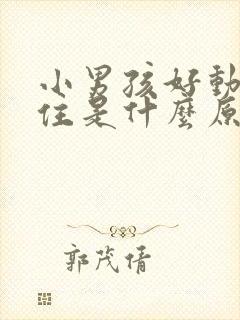 小男孩好動
住是什麼原
郭茂倩